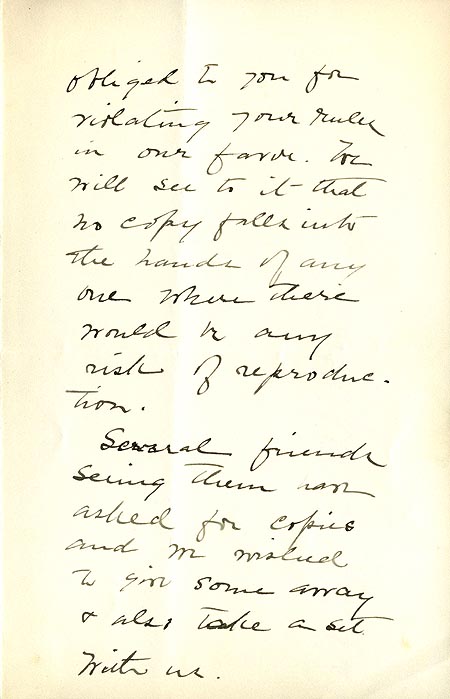 obliged to you for
violating your rules
in our favor. We
will see to it that
no copy falls into
the hands of any
one where there
would be any
risk of reproduc-
tion.
Several friends
seeing them have
asked for copies
and we wished
to give some away
& also take a set
with us.